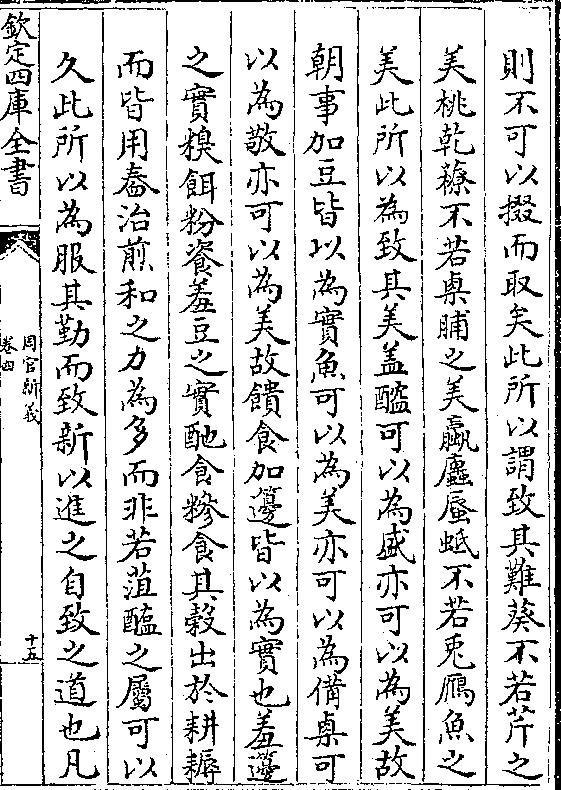 則不可以掇而取矣此所以謂致其難葵不若芹之
美桃乾䕩不若㮚脯之美蠃蠯蜃蚳不若兎鴈魚之
美此所以為致其美盖醓可以為盛亦可以為美故
朝事加豆皆以為實魚可以為美亦可以為備㮚可
以為敬亦可以為美故饋食加籩皆以為實也羞籩
之實糗餌粉餈羞豆之實酏食糝食其榖出於耕耨
而皆用舂治煎和之力為多而非若菹醢之屬可以
久此所以為服其勤而致新以進之自致之道也凡
欽定四庫全書
周官新義
卷四
十五